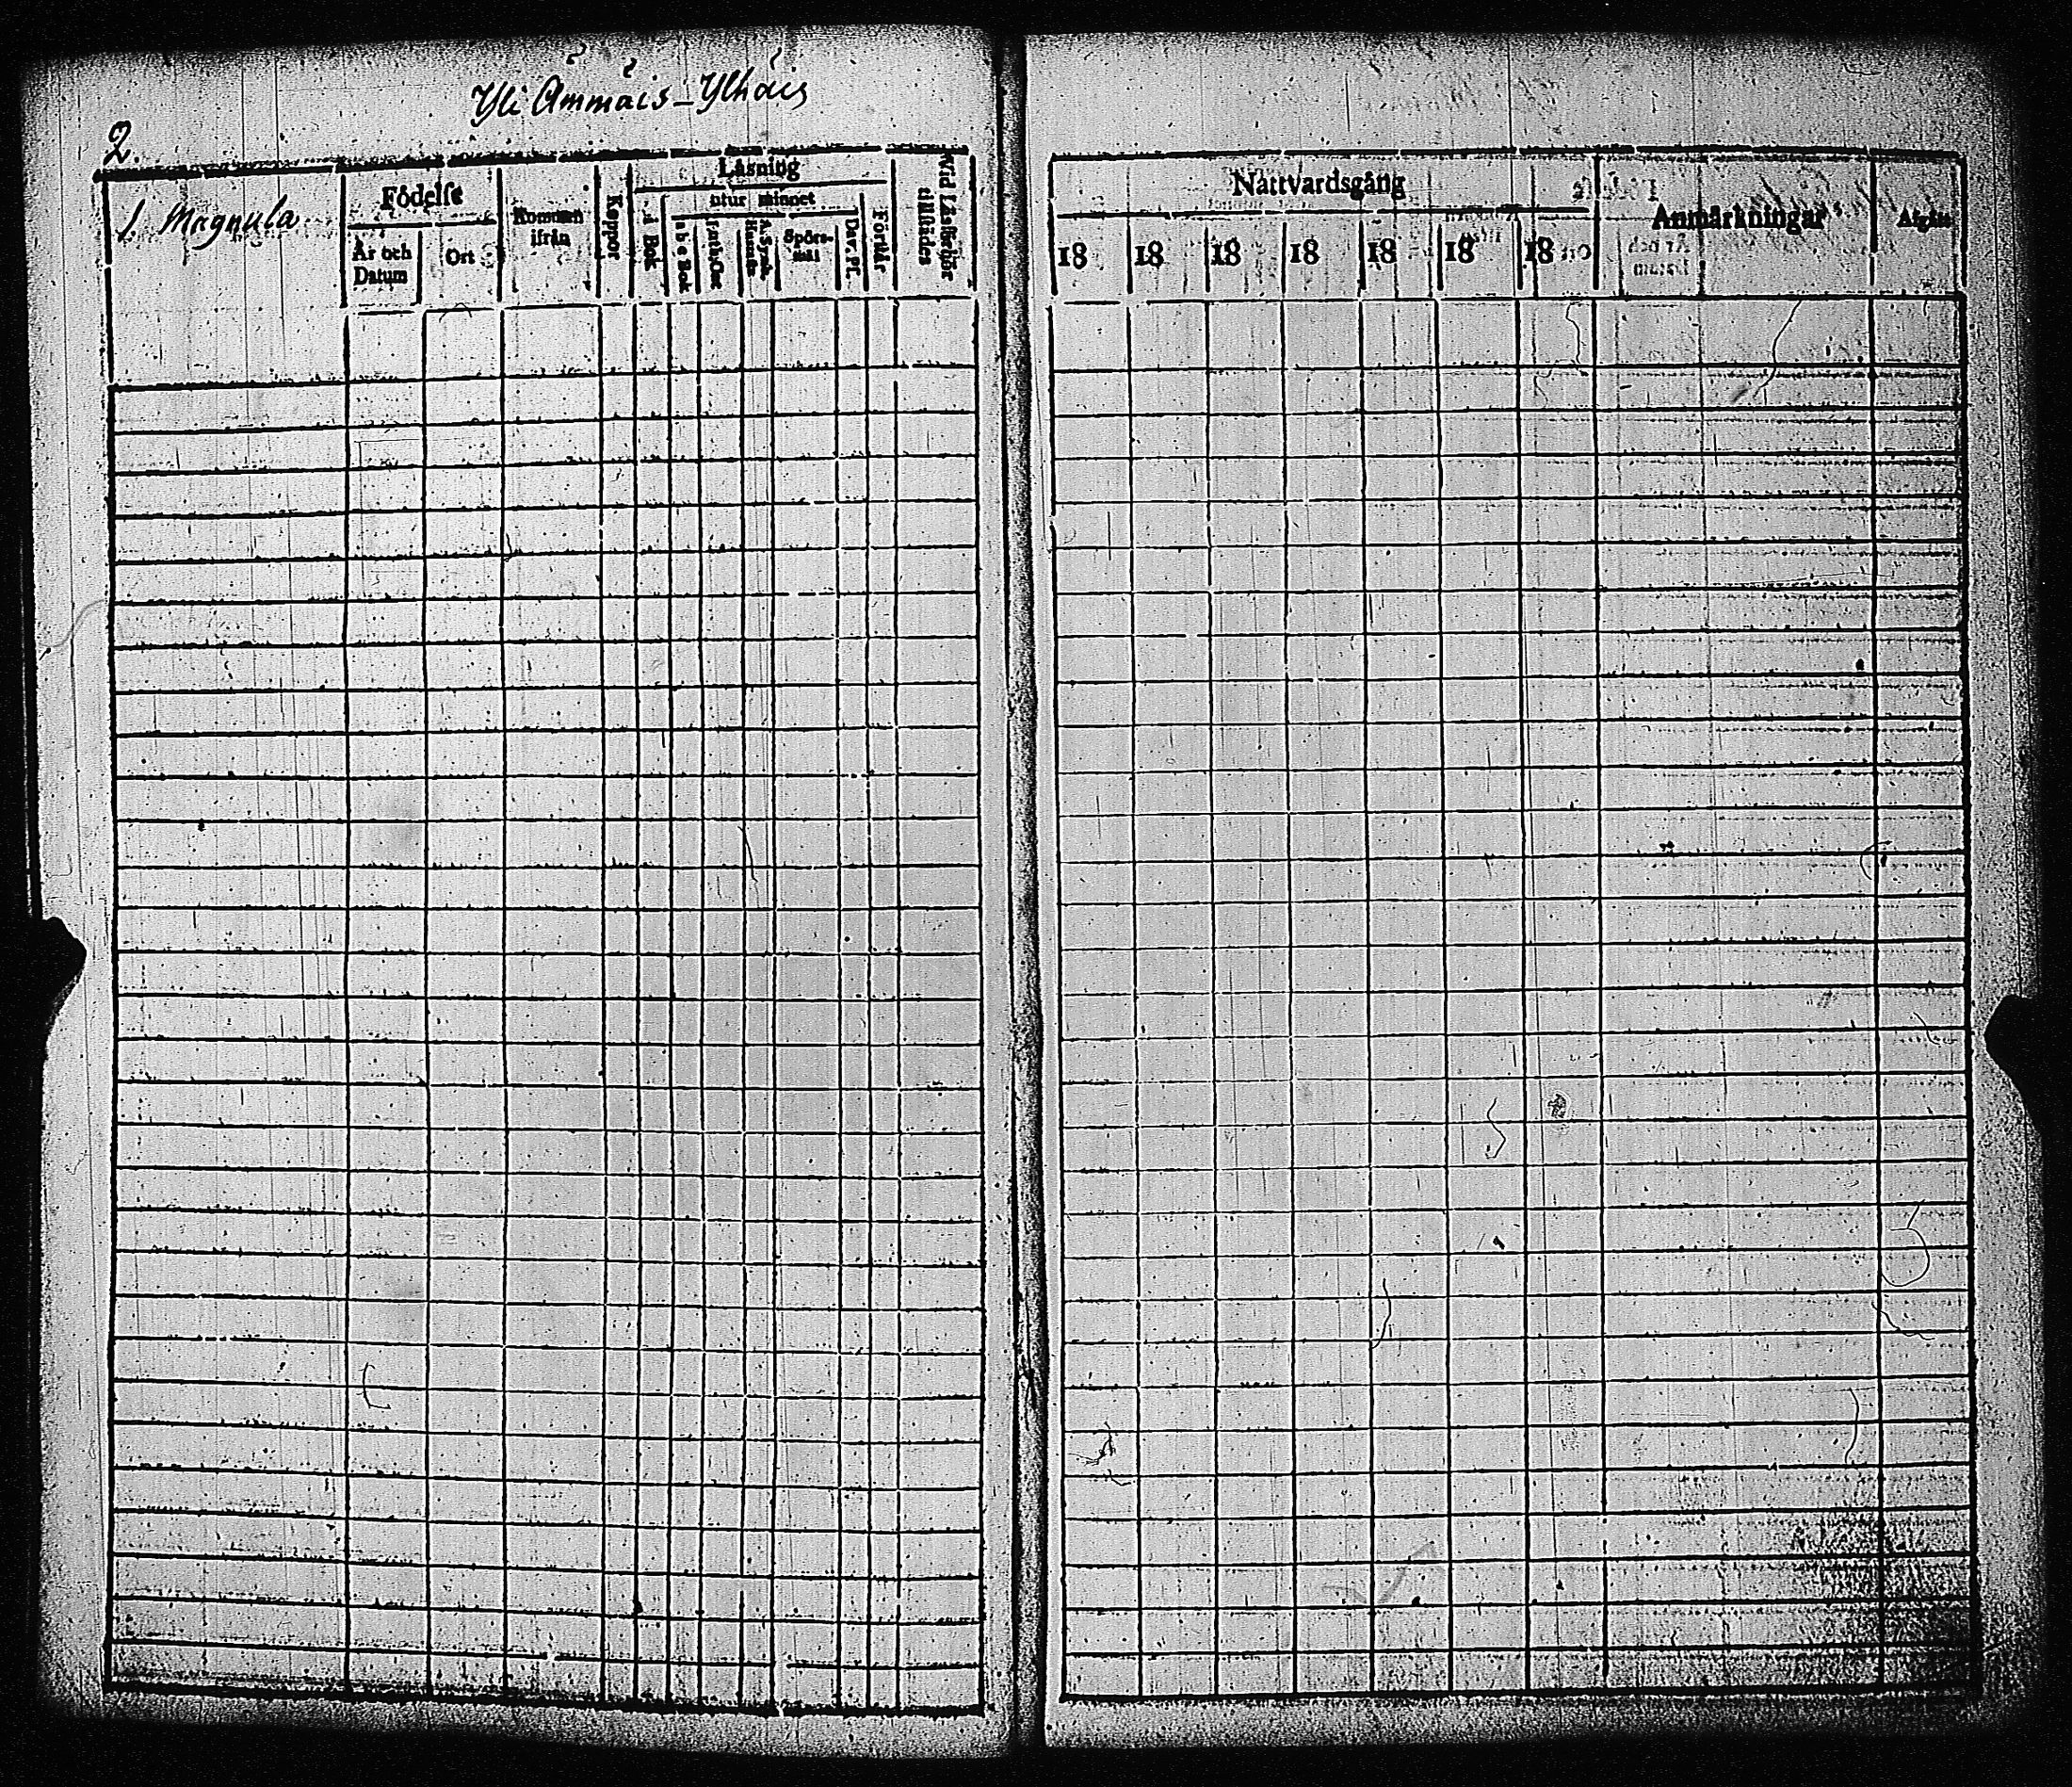 Yli Ämmäis - Ylhäis
2.
1. Magnula
Födelse
År och
Datum
Ort
Kommen
ifrån
Koppor
Läsning
utur minnet
i Bok
a b c Bok
A. Symb.
Spörs-
mål
Dav. Ps.
Förstår
Wid Läsförhör
tillstädes
Nattvardsgång
18 18 18 18 18 18 18
Anmärkningar
Afgått